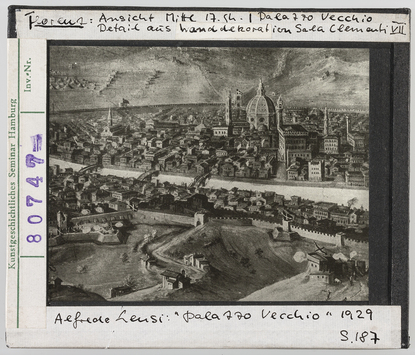 Florenz: Ansicht Mitte 17. Jh. | Palazzo Vecchio
Detail aus Wanddekoration Sala Clementi VII
Kunstgeschichtliches Seminar Hamburg
Inv.-Nr.
80747
Alfredo Lensi: "Palazzo Vecchio" 1929
S. 187